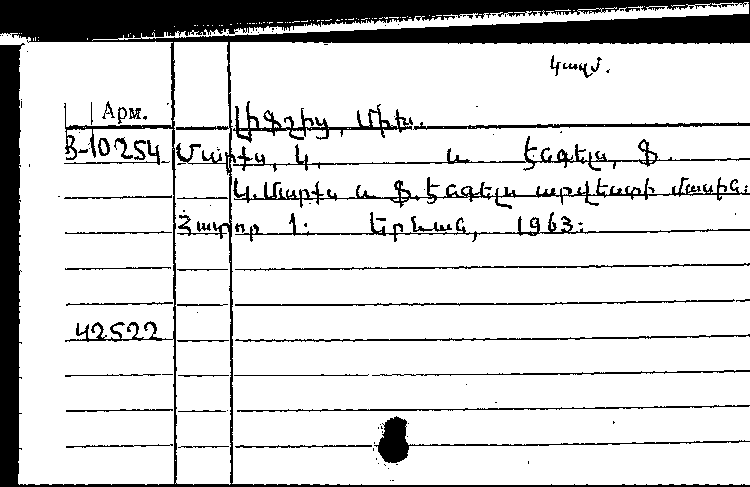 կազմ.
Арм.
Լիֆշից, Միխ.
В-10254 Մարքս, Կ. և Էնգելս, Ֆ.
Կ. Մարքս և Ֆ. Էնգելս արվեստի մասին:
Հատոր 1: Երևան, 1963:
42522